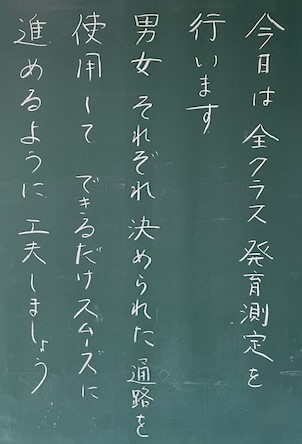 今日は 全クラス 発育測定を
行います
男女 それぞれ 決められた 通路を
使用して できるだけスムーズに
進めるように 工夫しましょう